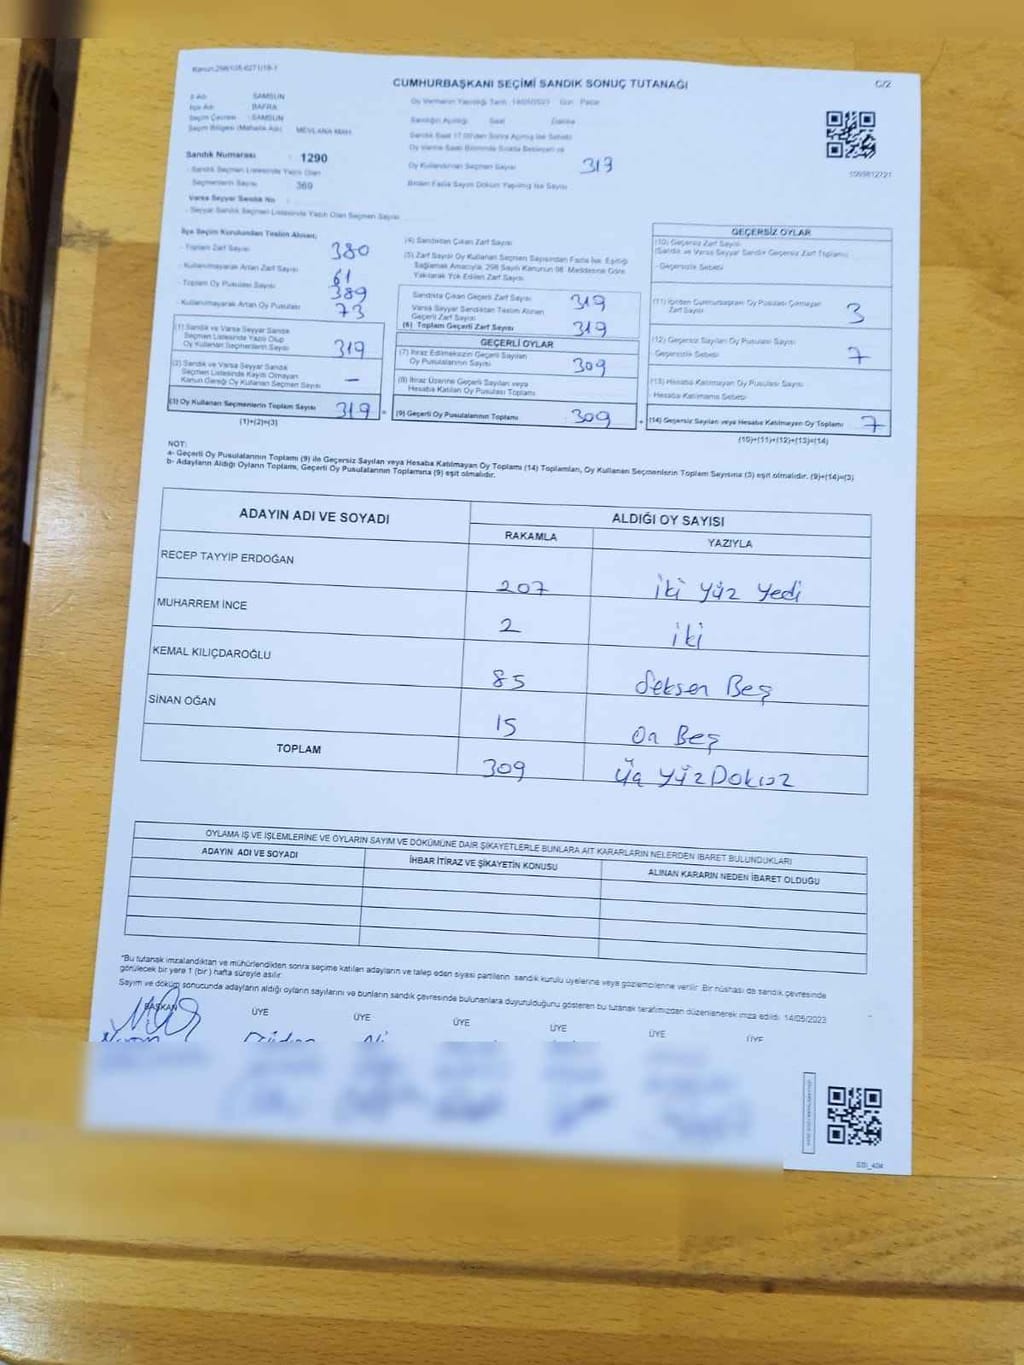 Kanun:298/105-6271/18-1
CUMHURBAŞKANI SEÇİMİ SANDIK SONUÇ TUTANAĞI
C/2
İl Adı : SAMSUN
İlçe Adı : BAFRA
Seçim Çevresi : SAMSUN
Seçim Bölgesi (Mahalle Adı) : MEVLANA MAH.
Oy Vermenin Yapıldığı Tarih: 14/05/2023 Gün: Pazar
Sandığın Açıldığı Saat Dakika
Sandık Saat 17.00'den Sonra Açılmış İse Sebebi
Oy Verme Saati Bitiminde Sırada Bekleyen ve
Oy Kullandırılan Seçmen Sayısı 319
Birden Fazla Sayım Döküm Yapılmış İse Sayısı
1099812721
Sandık Numarası : 1290
- Sandık Seçmen Listesinde Yazılı Olan
Seçmenlerin Sayısı 369
Varsa Seyyar Sandık No
- Seyyar Sandık Seçmen Listesinde Yazılı Olan Seçmen Sayısı
İlçe Seçim Kurulundan Teslim Alınan;
- Toplam Zarf Sayısı 380
- Kullanılmayarak Artan Zarf Sayısı 61
- Toplam Oy Pusulası Sayısı 389
- Kullanılmayarak Artan Oy Pusulası 73
(1) Sandık ve Varsa Seyyar Sandık
Seçmen Listesinde Yazılı Olup
Oy Kullanan Seçmenlerin Sayısı 319
(2) Sandık ve Varsa Seyyar Sandık
Seçmen Listesinde Kayıtlı Olmayan
Kanun Gereği Oy Kullanan Seçmen Sayısı —
(3) Oy Kullanan Seçmenlerin Toplam Sayısı 319 =
(1)+(2)=(3)
(4) Sandıktan Çıkan Zarf Sayısı
(5) Zarf Sayısı Oy Kullanan Seçmen Sayısından Fazla İse, Eşitliği
Sağlamak Amacıyla, 298 Sayılı Kanunun 98. Maddesine Göre
Yakılarak Yok Edilen Zarf Sayısı
Sandıkta Çıkan Geçerli Zarf Sayısı 319
Varsa Seyyar Sandıktan Teslim Alınan
Geçerli Zarf Sayısı
(6) Toplam Geçerli Zarf Sayısı 319
GEÇERLİ OYLAR
(7) İtiraz Edilmeksizin Geçerli Sayılan
Oy Pusulalarının Sayısı 309
(8) İtiraz Üzerine Geçerli Sayılan veya
Hesaba Katılan Oy Pusulası Toplamı
(9) Geçerli Oy Pusulalarının Toplamı 309 +
GEÇERSİZ OYLAR
(10) Geçersiz Zarf Sayısı
(Sandık ve Varsa Seyyar Sandık Geçersiz Zarf Toplamı)
- Geçersizlik Sebebi
(11) İçinden Cumhurbaşkanı Oy Pusulası Çıkmayan
Zarf Sayısı 3
(12) Geçersiz Sayılan Oy Pusulası Sayısı
- Geçersizlik Sebebi 7
(13) Hesaba Katılmayan Oy Pusulası Sayısı
- Hesaba Katılmama Sebebi
(14) Geçersiz Sayılan veya Hesaba Katılmayan Oy Toplamı 7
(10)+(11)+(12)+(13)=(14)
NOT:
a- Geçerli Oy Pusulalarının Toplamı (9) ile Geçersiz Sayılan veya Hesaba Katılmayan Oy Toplamı (14) Toplamları, Oy Kullanan Seçmenlerin Toplam Sayısına (3) eşit olmalıdır. (9)+(14)=(3)
b- Adayların Aldığı Oyların Toplamı, Geçerli Oy Pusulalarının Toplamına (9) eşit olmalıdır.
ADAYIN ADI VE SOYADI
ALDIĞI OY SAYISI
RAKAMLA YAZIYLA
RECEP TAYYİP ERDOĞAN 207 İki Yüz Yedi
MUHARREM İNCE 2 İki
KEMAL KILIÇDAROĞLU 85 Seksen Beş
SİNAN OĞAN 15 On Beş
TOPLAM 309 Üç YüzDokuz
OYLAMA İŞ VE İŞLEMLERİNE VE OYLARIN SAYIM VE DÖKÜMÜNE DAİR ŞİKAYETLERLE BUNLARA AİT KARARLARIN NELERDEN İBARET BULUNDUKLARI
ADAYIN ADI VE SOYADI İHBAR İTİRAZ VE ŞİKAYETİN KONUSU ALINAN KARARIN NEDEN İBARET OLDUĞU
*Bu tutanak imzalandıktan ve mühürlendikten sonra seçime katılan adayların ve talep eden siyasi partilerin sandık kurulu üyelerine veya gözlemcilerine verilir. Bir nüshası da sandık çevresinde
görülecek bir yere 1 (bir) hafta süreyle asılır.
Sayım ve döküm sonucunda adayların aldığı oyların sayılarını ve bunların sandık çevresinde bulunanlara duyurulduğunu gösteren bu tutanak tarafımızdan düzenlenerek imza edildi. 14/05/2023
BAŞKAN ÜYE ÜYE ÜYE ÜYE ÜYE ÜYE